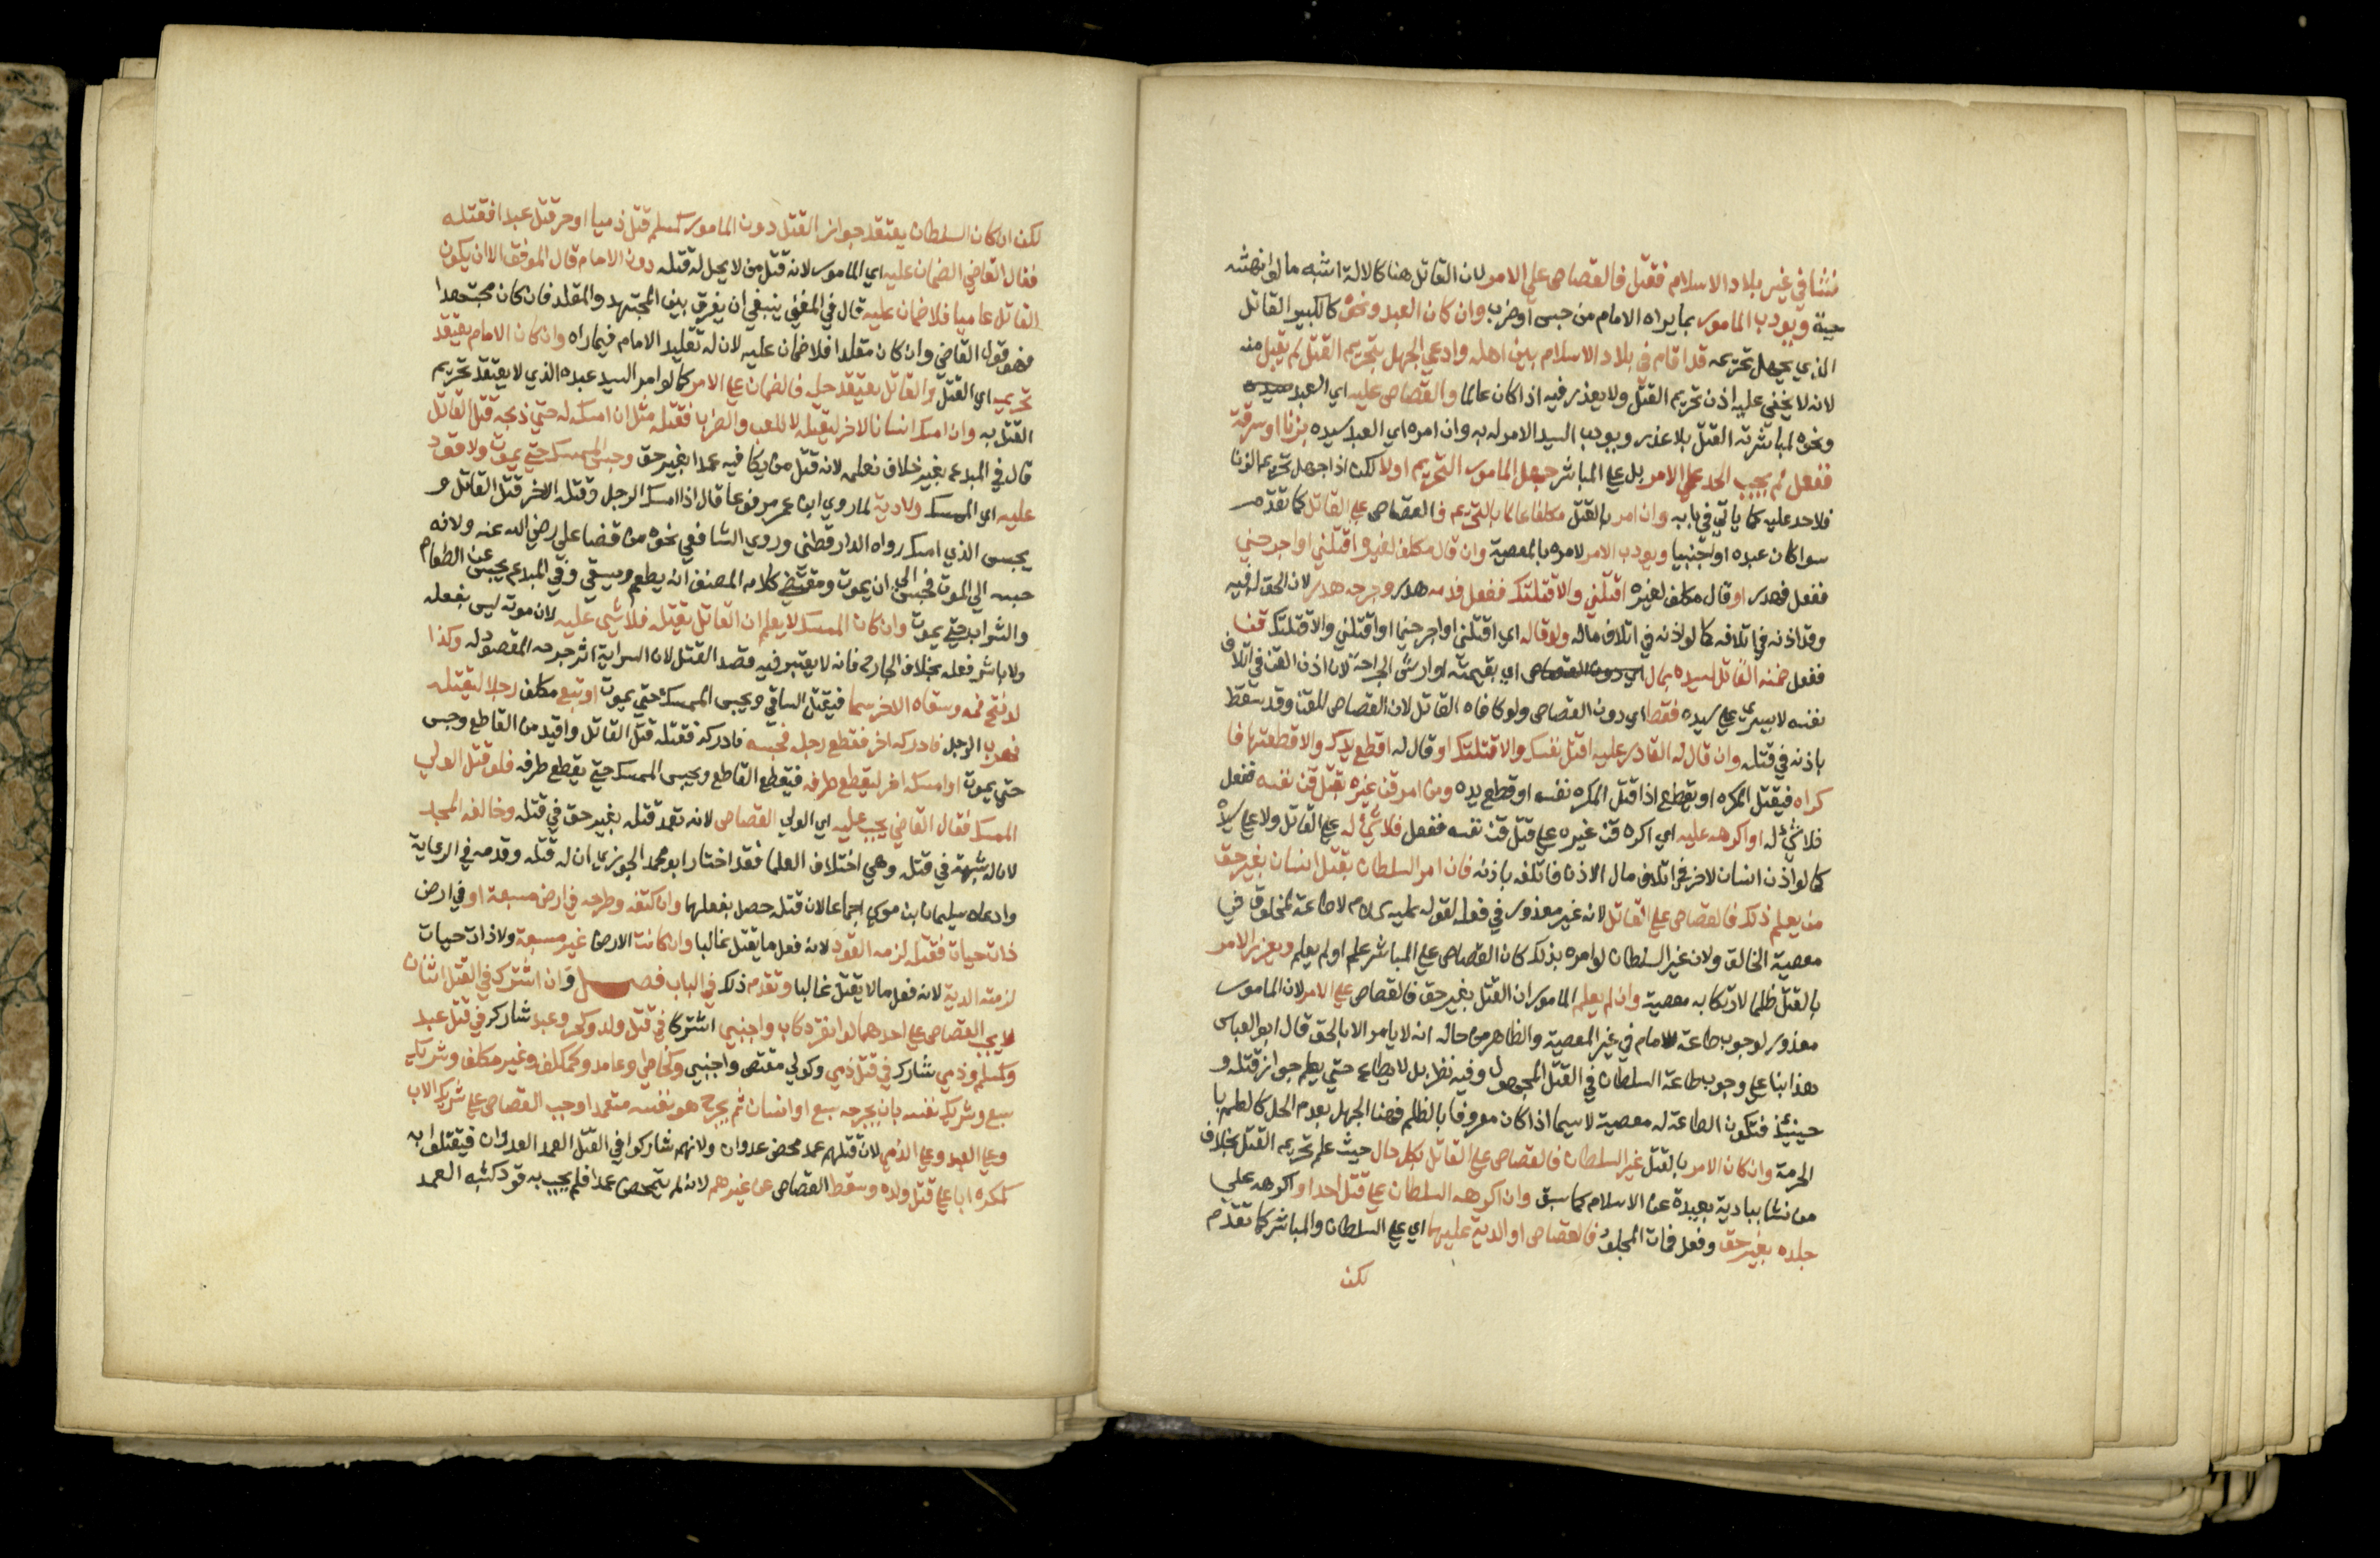 نشا في غير بلاد الاسلام فقتل فالقصاص علي الامر لان القاتل هنا كالالة اشبه ما لو انهشه
حية ويودب المامور بما يراه الامام من حبس او ضرب وان كان العبد ونحوه كالكبير القاتل
الذي يجهل تحريمه قد اقام في بلاد الاسلام بين اهله وادعي الجهل بتحريم القتل لم يقبل منه
لانه لا يخفي عليه اذن تحريم القتل ولا يعذر فيه اذا كان عالما والقصاص عليه اي العبد
ونحوه لمباشرته القتل بلا عذر ويودب السيد الامر له به وان امره اي العبد سيده بزنا او سرقة
ففعل لم يجب الحد علي الامر بل علي المباشر جهل المامور التحريم اولا لكن اذا جهل تحريم الزنا
فلا حد عليه كما ياتي في بابه وان امر بالقتل مكلفا عالما بالتحريم فالقصاص علي القاتل كما تقدم
سوا كان عبده او اجنبيا ويودب الامر لامره بالمعصية وان قال مكلف لغيره اقتلني او اجرحني
ففعل فهدر او قال مكلف لغيره اقتلني والا قتلتك ففعل فدمه هدر وجرحه هدر لان الحق له فيه
وقد اذنه في اتلافه كما لو اذنه في اتلاف ماله ولو قاله اي اقتلني او اجرحني او اقتلني والا قتلتك قن
ففعل ضمنه القاتل لسيده بمال اي بقيمته او ارش الجراحة لان اذن القن في اتلاف
نفسه لا يسري علي سيده فقط اي دون القصاص ولو كافاه القاتل لان القصاص للقن وقد سقط
باذنه في قتله وان قال له القادر عليه اقتل نفسك والا قتلتك او قال له اقطع يدك والا قطعتها فا
كراه فيقتل المكره او يقطع اذا قتل المكره نفسه او قطع يده ومن امر قن غيره بقتل قن نفسه ففعل
فلا شي له او اكرهه عليه اي اكره قن غيره علي قتل قن نفسه ففعل فلا شي له علي القاتل ولا علي سيده
كما لو اذن انسان لاخر في اتلاف مال الاذن فاتلفه باذنه فان امر السلطان بقتل انسان بغير حق
من يعلم ذلك فالقصاص علي القاتل لانه غير معذور في فعله لقوله عليه السلام لا طاعة لمخلوق في
معصية الخالق ولان غير السلطان لو امره بذلك كان القصاص علي المباشر علم او لم يعلم ويعزر الامر
بالقتل ظلما لارتكابه معصية وان لم يعلم المامور ان القتل بغير حق فالقصاص علي الامر لان المامور
معذور لوجوب طاعة الامام في غير المعصية والظاهر من حاله انه لا يامر الا بالحق قال ابو العباس
هذا بنا علي وجوب طاعة السلطان في القتل المجهول وفيه نظر بل لا يطاع حتي يعلم جواز قتله و
حينئذ فتكون الطاعة له معصية لا سيما اذا كان معروفا بالظلم فهنا الجهل بعدم الحل كالعلم با
الحرمة وان كان الامر بالقتل غير السلطان فالقصاص علي القاتل بكل حال حيث علم تحريم القتل بخلاف
من نشا ببادية بعيدة عن الاسلام كما سبق وان اكرهه السلطان علي قتل احد او اكرهه علي
جلده بغير حق وفعل فمات المجلود فالقصاص او الدية عليهما اي علي السلطان والمباشر كما تقدم
لكن
لكن ان كان السلطان يعتقد جواز القتل دون المامور كمسلم قتل ذميا او حر قتل عبدا فقتله
فقال القاضي الضمان عليه اي المامور لانه قتل من لا يحل له قتله دون الامام قال الموفق الا ان يكون
القاتل عاميا فلا ضمان عليه قال في المغني ينبغي ان يفرق بين المجتهد والمقلد فان كان مجتهدا
فهو قول القاضي وان كان مقلدا فلا ضمان عليه لان له تقليد الامام فيما راه وان كان الامام يعتقد
تحريمه اي القتل والقاتل يعتقد حله فالضمان علي الامر كما لو امر السيد عبده الذي لا يعتقد تحريم
القتل به وان امسك انسانا لاخر ليقتله لا للعب والضرب فقتله مثل ان امسكه له حتي ذبحه قتل القاتل
قال في المبدع بغير خلاف نعلمه لانه قتل من يكافيه عمدا بغير حق وحبس الممسك حتي يموت ولا قود
عليه اي الممسك ولا دية لما روي ابن عمر مرفوعا قال اذا امسك الرجل وقتله الاخر قتل القاتل و
يحبس الذي امسك رواه الدارقطني وروي الشافعي نحوه من قضا علي رضي الله عنه ولانه
حبسه الي الموت فحبس الي ان يموت ومقتضي كلام المصنف انه يطعم ويسقي وفي المبدع يحبس عن الطعام
والشراب حتي يموت وان كان الممسك لا يعلم ان القاتل يقتله فلا شي عليه لان موته ليس بفعله
ولا باشر فعله بخلاف الجارح فانه لا يعتبر فيه قصد القتل لان السراية اثر جرحه المقصود له وكذا
لو فتح فمه وسقاه الاخر سما فيقتل الساقي ويحبس الممسك حتي يموت او تبع مكلف رجلا ليقتله
فهرب الرجل فادركه اخر فقطع رجله فحبسه فادركه فقتله قتل القاتل واقيد من القاطع وحبس
حتي يموت او امسكه اخر ليقطع طرفه فيقطع القاطع ويحبس الممسك حتي يقطع طرفه فلو قتل الولي
الممسك فقال القاضي يجب عليه اي الولي القصاص لانه تعمد قتله بغير حق في قتله وخالفه المجد
لان له شبهة في قتله وهي اختلاف العلما فقد اختار ابو محمد الجوزي ان له قتله وقدمه في الرعاية
وادعاه سليمان بن موسي اجماعا لان قتله حصل بفعلهما وان كتفه وطرحه في ارض مسبعة او في ارض
ذات حيات فقتله لزمه القود لانه فعل ما يقتل غالبا وان كانت الارض غير مسبعة ولا ذات حيات
لزمته الدية لانه فعل ما لا يقتل غالبا وتقدم ذلك في الباب فصل وان اشترك في القتل اثنان
لا يجب القصاص علي احدهما لو انفرد كاب واجنبي اشتركا في قتل ولد وكحر وعبد شاركه في قتل عبد
وكمسلم وذمي شاركه في قتل ذمي وكولي مقتص واجنبي وكخاطي وعامد وكمكلف وغير مكلف وشريك
سبع وشريك نفسه بان يجرحه سبع او انسان ثم يجرح هو نفسه متعمدا وجب القصاص علي شريك الاب
وعلي العبد وعلي الذمي لان قتلهم عمد محض عدوان ولانهم شاركوا في القتل العمد العدوان فيقتلوا به
كمكره ابا علي قتل ولده وسقط القصاص عن غيرهم لانه لم يتمحض عمدا فلم يجب به قود كشبه العمد